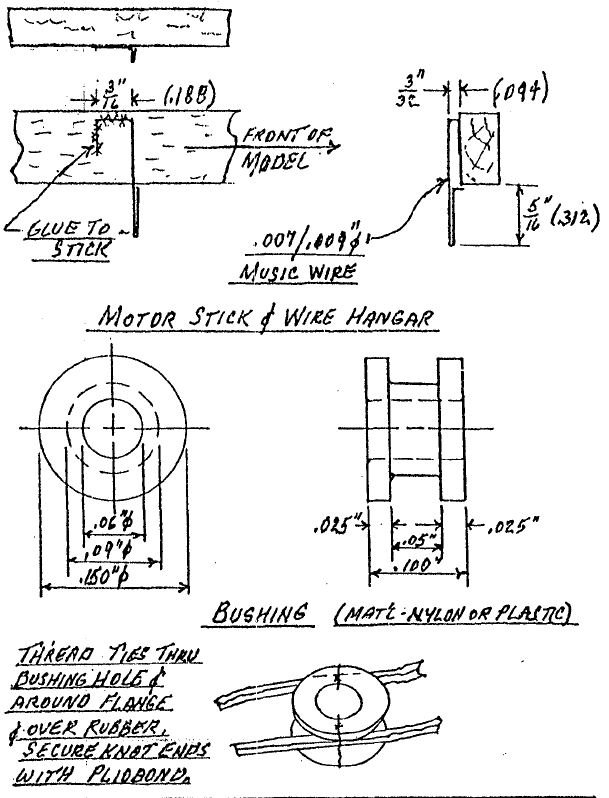 3/16" (.188)
3"/32 (.094)
FRONT OF
MODEL
GLUE TO
STICK
5/16" (.312)
.007/.009"ϕ
MUSIC WIRE
MOTOR STICK & WIRE HANGAR
.06"ϕ
.09"ϕ
.150"ϕ
.025"
.025"
.05"
.100"
BUSHING (MAT'L-NYLON OR PLASTIC)
THREAD TIES THRU
BUSHING HOLE &
AROUND FLANGE
& OVER RUBBER.
SECURE KNOT ENDS
WITH PLIOBOND.